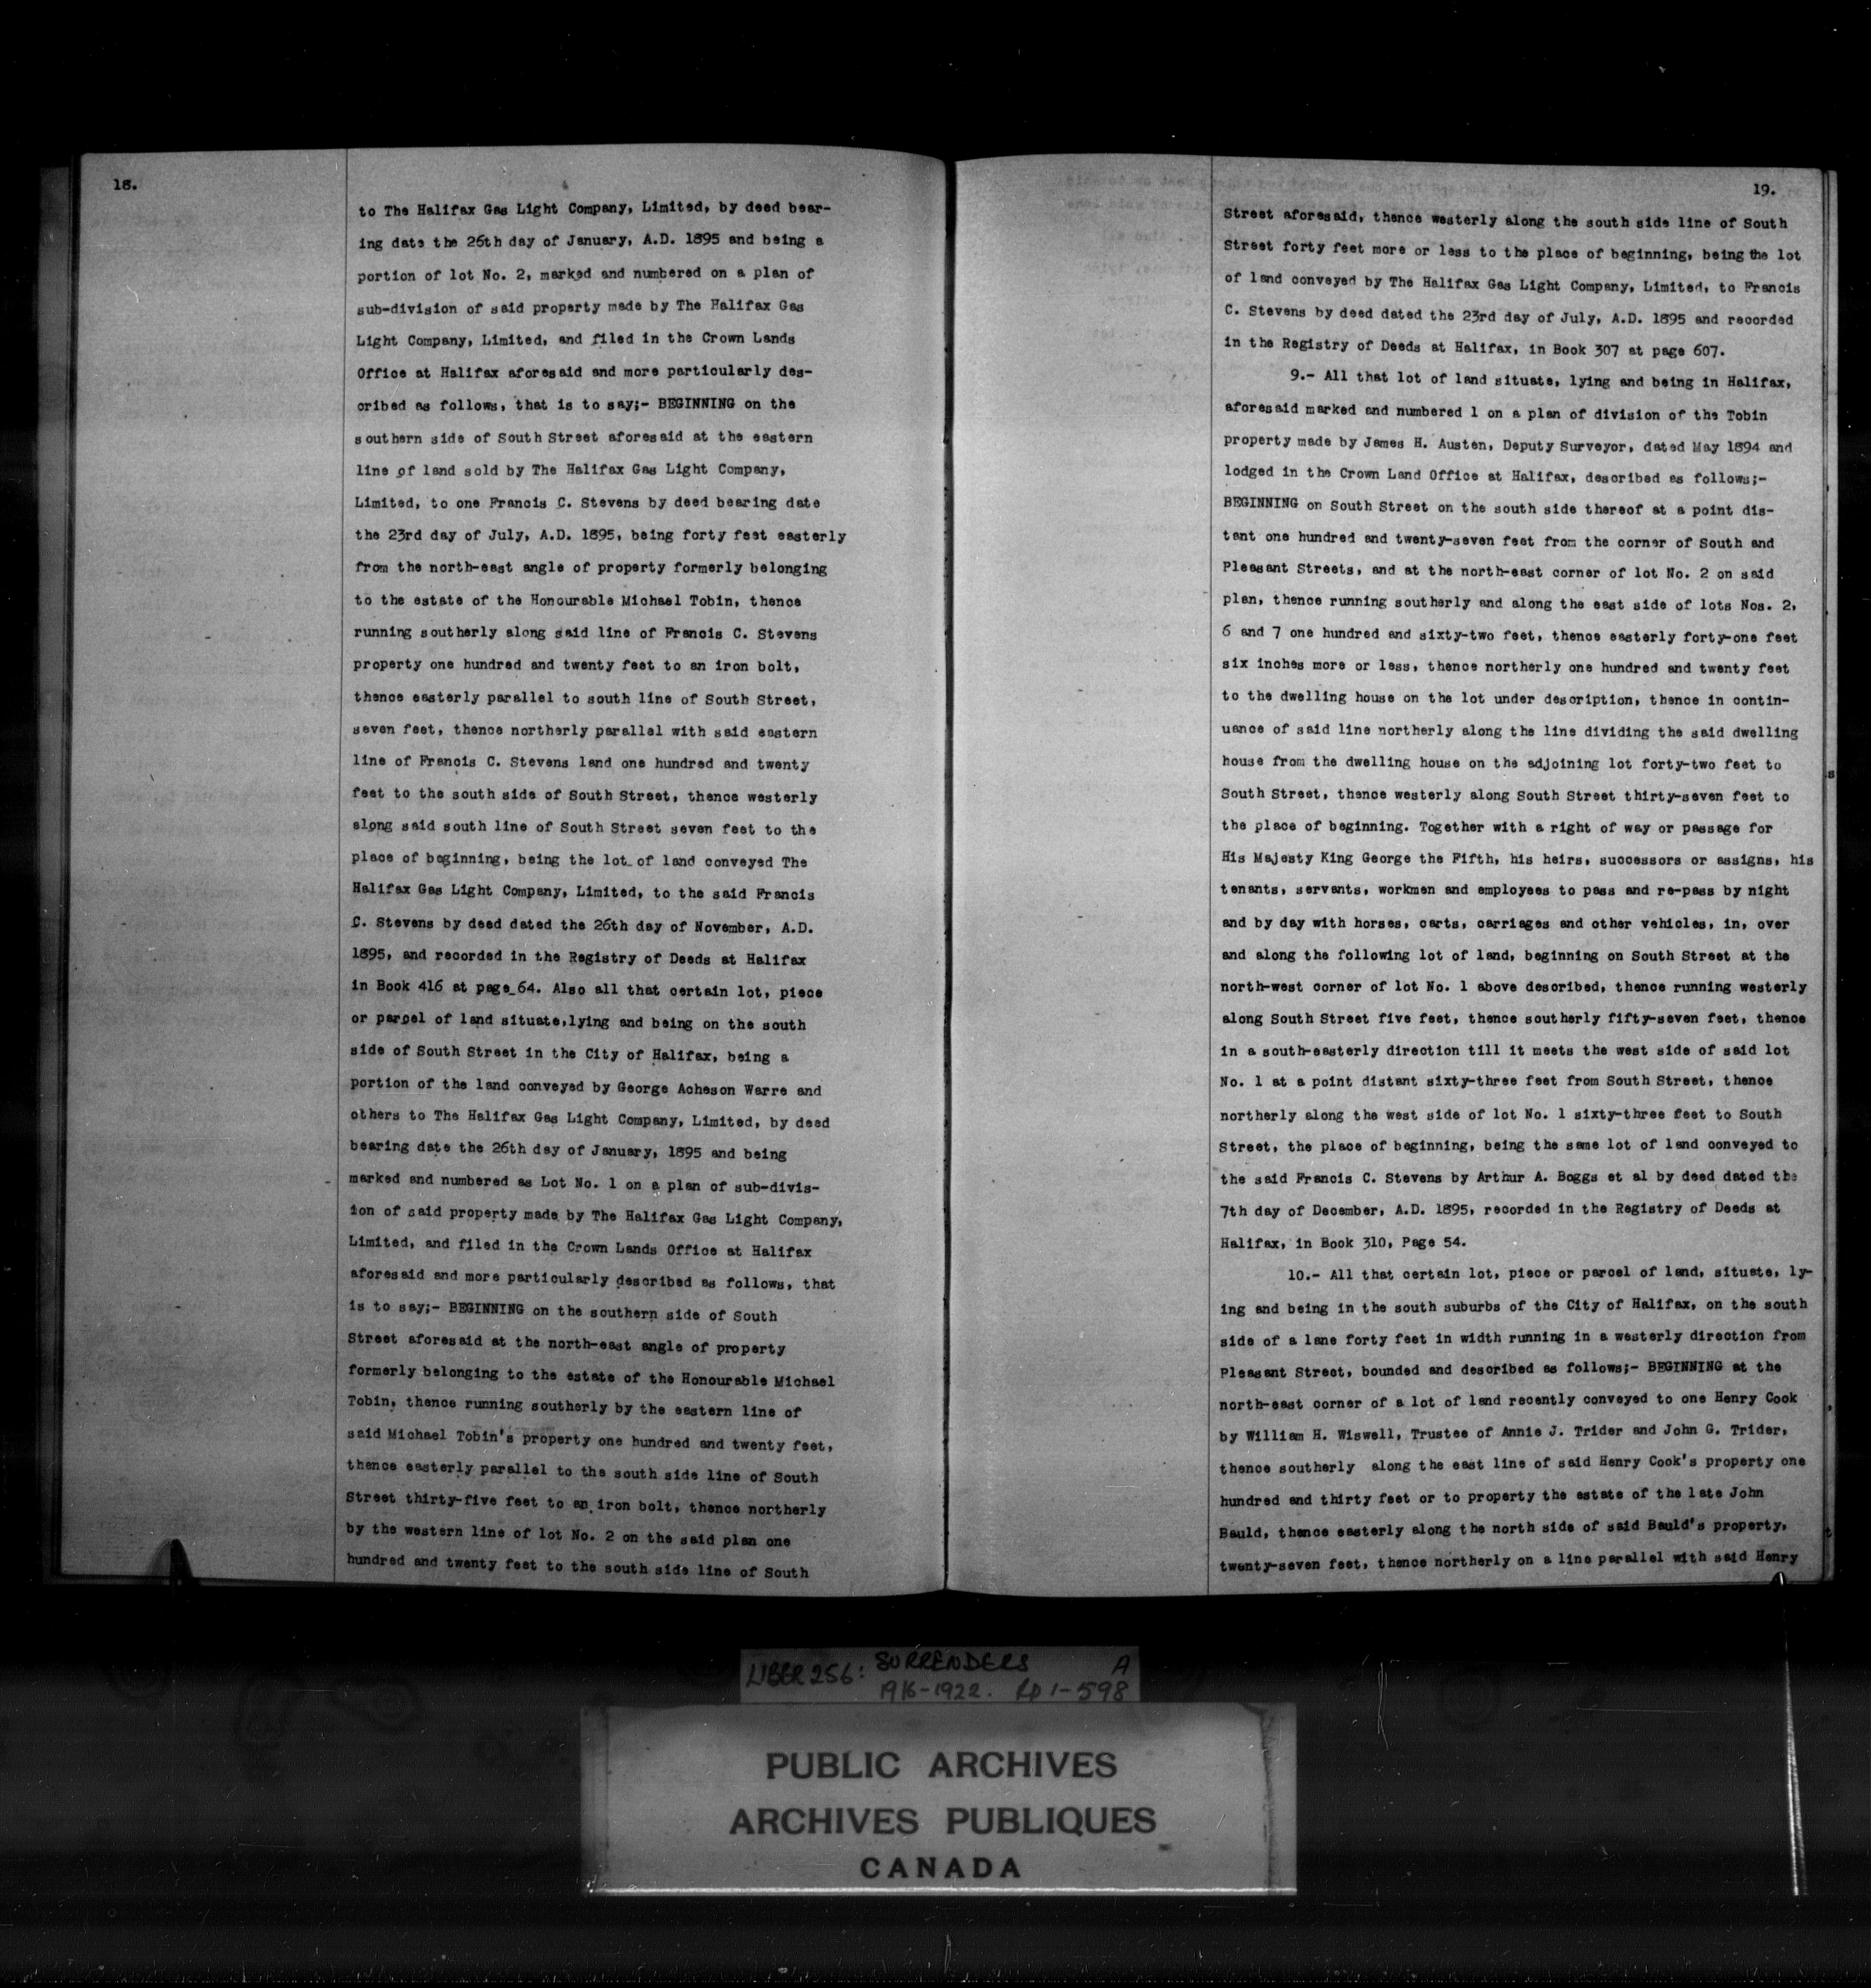 18.
to The Halifax Gas Light Company, Limited, by deed bear-
ing date the 26th day of January, A.D. 1895 and being a
portion of lot No. 2, marked and numbered on a plan of
sub-division of said property made by The Halifax Gas
Light Company, Limited, and filed in the Crown Lands
Office at Halifax aforesaid and more particularly des-
cribed as follows, that is to say;- BEGINNING on the
southern side of South Street aforesaid at the eastern
line of land sold by The Halifax Gas Light Company,
Limited, to one Francis C. Stevens by deed bearing date
the 23rd day of July, A.D. 1895, being forty feet easterly
from the north-east angle of property formerly belonging
to the estate of the Honourable Michael Tobin, thence
running southerly along said line of Francis C. Stevens
property one hundred and twenty feet to an iron bolt,
thence easterly parallel to south line of South Street,
seven feet, thence northerly parallel with said eastern
line of Francis C. Stevens land one hundred and twenty
feet to the south side of South Street, thence westerly
along said south line of South Street seven feet to the
place of beginning, being the lot of land conveyed The
Halifax Gas Light Company, Limited, to the said Francis
C. Stevens by deed dated the 26th day of November, A.D.
1895, and recorded in the Registry of Deeds at Halifax
in Book 416 at page 64. Also all that certain lot, piece
or parcel of land situate,lying and being on the south
side of South Street in the City of Halifax, being a
portion of the land conveyed by George Acheson Warre and
others to The Halifax Gas Light Company, Limited, by deed
bearing date the 26th day of January, 1895 and being
marked and numbered as Lot No. 1 on a plan of sub-divis-
ion of said property made by The Halifax Gas Light Company,
Limited, and filed in the Crown Lands Office at Halifax
aforesaid and more particularly described as follows, that
is to say;- BEGINNING on the southern side of South
Street aforesaid at the north-east angle of property
formerly belonging to the estate of the Honourable Michael
Tobin, thence running southerly by the eastern line of
said Michael Tobin's property one hundred and twenty feet,
thence easterly parallel to the south side line of South
Street thirty-five feet to an iron bolt, thence northerly
by the western line of lot No. 2 on the said plan one
hundred and twenty feet to the south side line of South
19.
Street aforesaid, thence westerly along the south side line of South
Street forty feet more or less to the place of beginning, being the lot
of land conveyed by The Halifax Gas Light Company, Limited, to Francis
C. Stevens by deed dated the 23rd day of July, A.D. 1895 and recorded
in the Registry of Deeds at Halifax, in Book 307 at page 607.
9.- All that lot of land situate, lying and being in Halifax,
aforesaid marked and numbered 1 on a plan of division of the Tobin
property made by James H. Austen, Deputy Surveyor, dated May 1894 and
lodged in the Crown Land Office at Halifax, described as follows;-
BEGINNING on South Street on the south side thereof at a point dis-
tant one hundred and twenty-seven feet from the corner of South and
Pleasant Streets, and at the north-east corner of lot No. 2 on said
plan, thence running southerly and along the east side of lots Nos. 2,
6 and 7 one hundred and sixty-two feet, thence easterly forty-one feet
six inches more or less, thence northerly one hundred and twenty feet
to the dwelling house on the lot under description, thence in contin-
uance of said line northerly along the line dividing the said dwelling
house from the dwelling house on the adjoining lot forty-two feet to
South Street, thence westerly along South Street thirty-seven feet to
the place of beginning. Together with a right of way or passage for
His Majesty King George the Fifth, his heirs, successors or assigns, his
tenants, servants, workmen and employees to pass and re-pass by night
and by day with horses, carts, carriages and other vehicles, in, over
and along the following lot of land, beginning on South Street at the
north-west corner of lot No. 1 above described, thence running westerly
along South Street five feet, thence southerly fifty-seven feet, thence
in a south-easterly direction till it meets the west side of said lot
No. 1 at a point distant sixty-three feet from South Street, thence
northerly along the west side of lot No. 1 sixty-three feet to South
Street, the place of beginning, being the same lot of land conveyed to
the said Francis C. Stevens by Arthur A. Boggs et al by deed dated the
7th day of December, A.D. 1895, recorded in the Registry of Deeds at
Halifax, in Book 310, Page 54.
10.- All that certain lot, piece or parcel of land, situate, ly-
ing and being in the south suburbs of the City of Halifax, on the south
side of a lane forty feet in width running in a westerly direction from
Pleasant Street, bounded and described as follows;- BEGINNING at the
north-east corner of a lot of land recently conveyed to one Henry Cook
by William H. Wiswell, Trustee of Annie J. Trider and John G. Trider,
thence southerly along the east line of said Henry Cook's property one
hundred and thirty feet or to property the estate of the late John
Bauld, thence easterly along the north side of said Bauld's property,
twenty-seven feet, thence northerly on a line parallel with said Henry
LIBER 256: SURRENDERS A
1916-1922. pp 1-598
PUBLIC ARCHIVES
ARCHIVES PUBLIQUES
CANADA